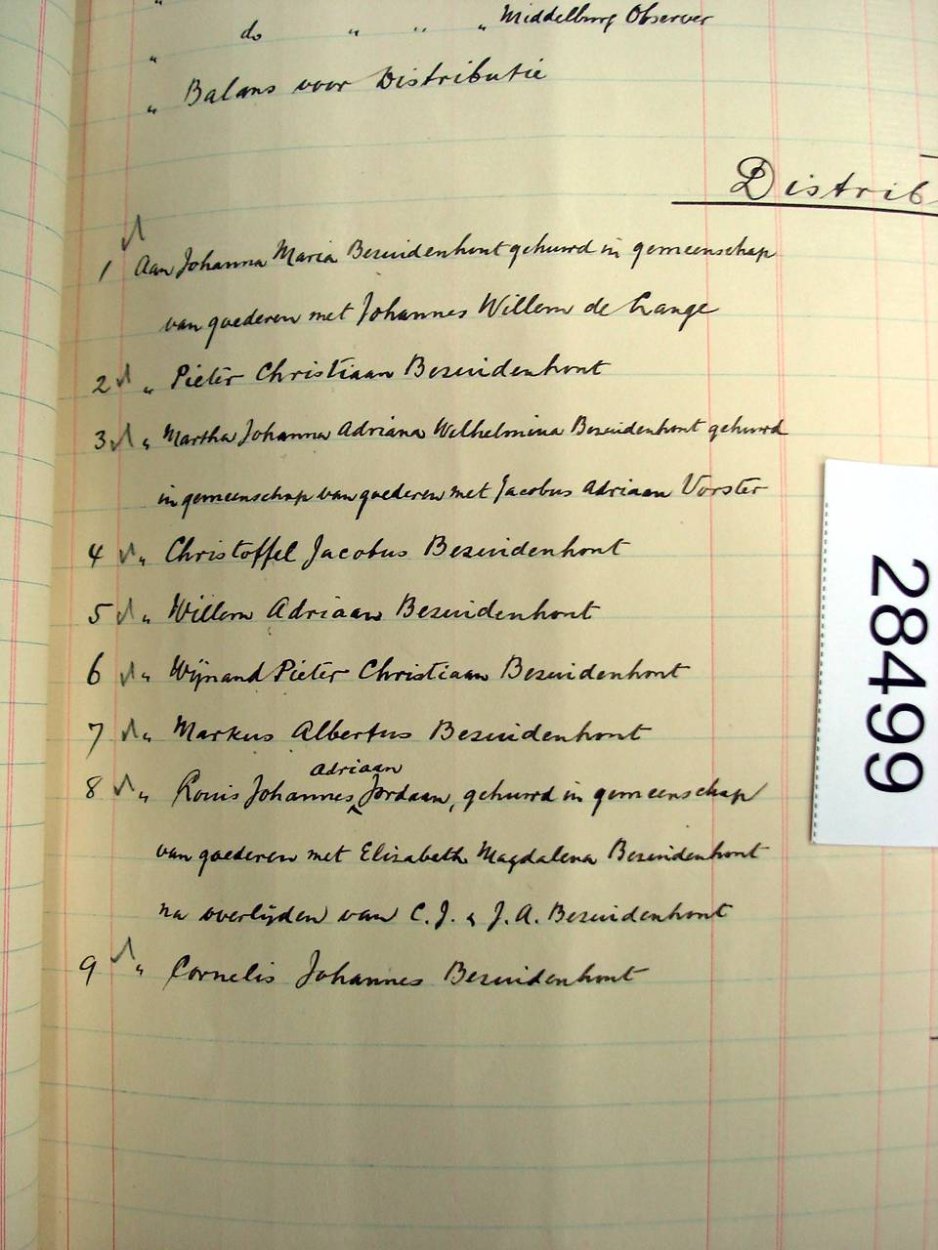 " do " " " Middelburg Observer
" Balans voor Distributie
Distrib
1 Aan Johanna Maria Bezuidenhout gehuwd in gemeenschap
van goederen met Johannes Willem de Lange
2 " Pieter Christiaan Bezuidenhout
3 " Martha Johanna Adriana Wilhelmina Bezuidenhout gehuwd
in gemeenschap van goederen met Jacobus Adriaan Vorster
4 " Christoffel Jacobus Bezuidenhout
5 " Willem Adriaan Bezuidenhout
6 " Wijnand Pieter Christiaan Bezuidenhout
7 " Markus Albertus Bezuidenhout
adriaan
8 " Louis Johannes ^ Jordaan, gehuwd in gemeenschap
van goederen met Elizabeth Magdalena Bezuidenhout
na overlijden van C. J. & J. A. Bezuidenhout
9 " Cornelis Johannes Bezuidenhout
28499